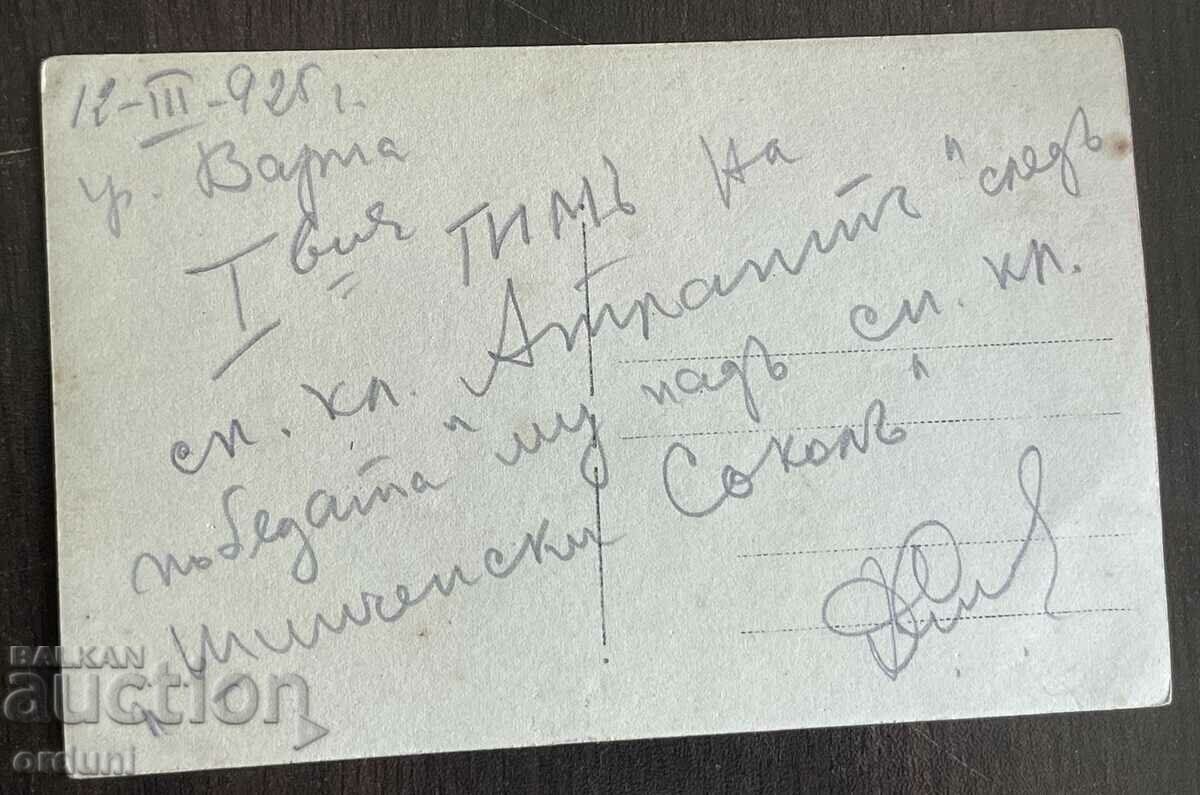 12-III-925 г.
гр. Варна
I вия тимъ на
сп. кл. "Атрактъ" следъ
победата му надъ сп. кл.
"Шипченски Соколъ"
BALKAN
auction
orduni